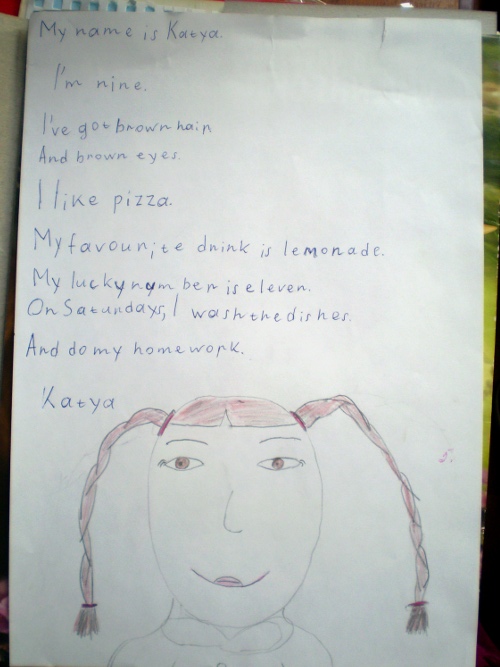 My name is Katya.
I'm nine.
I've got brown hair
And brown eyes.
I like pizza.
My favourite drink is lemonade.
My lucky number is eleven.
On Saturdays, I wash the dishes.
And do my homework.
Katya
5.